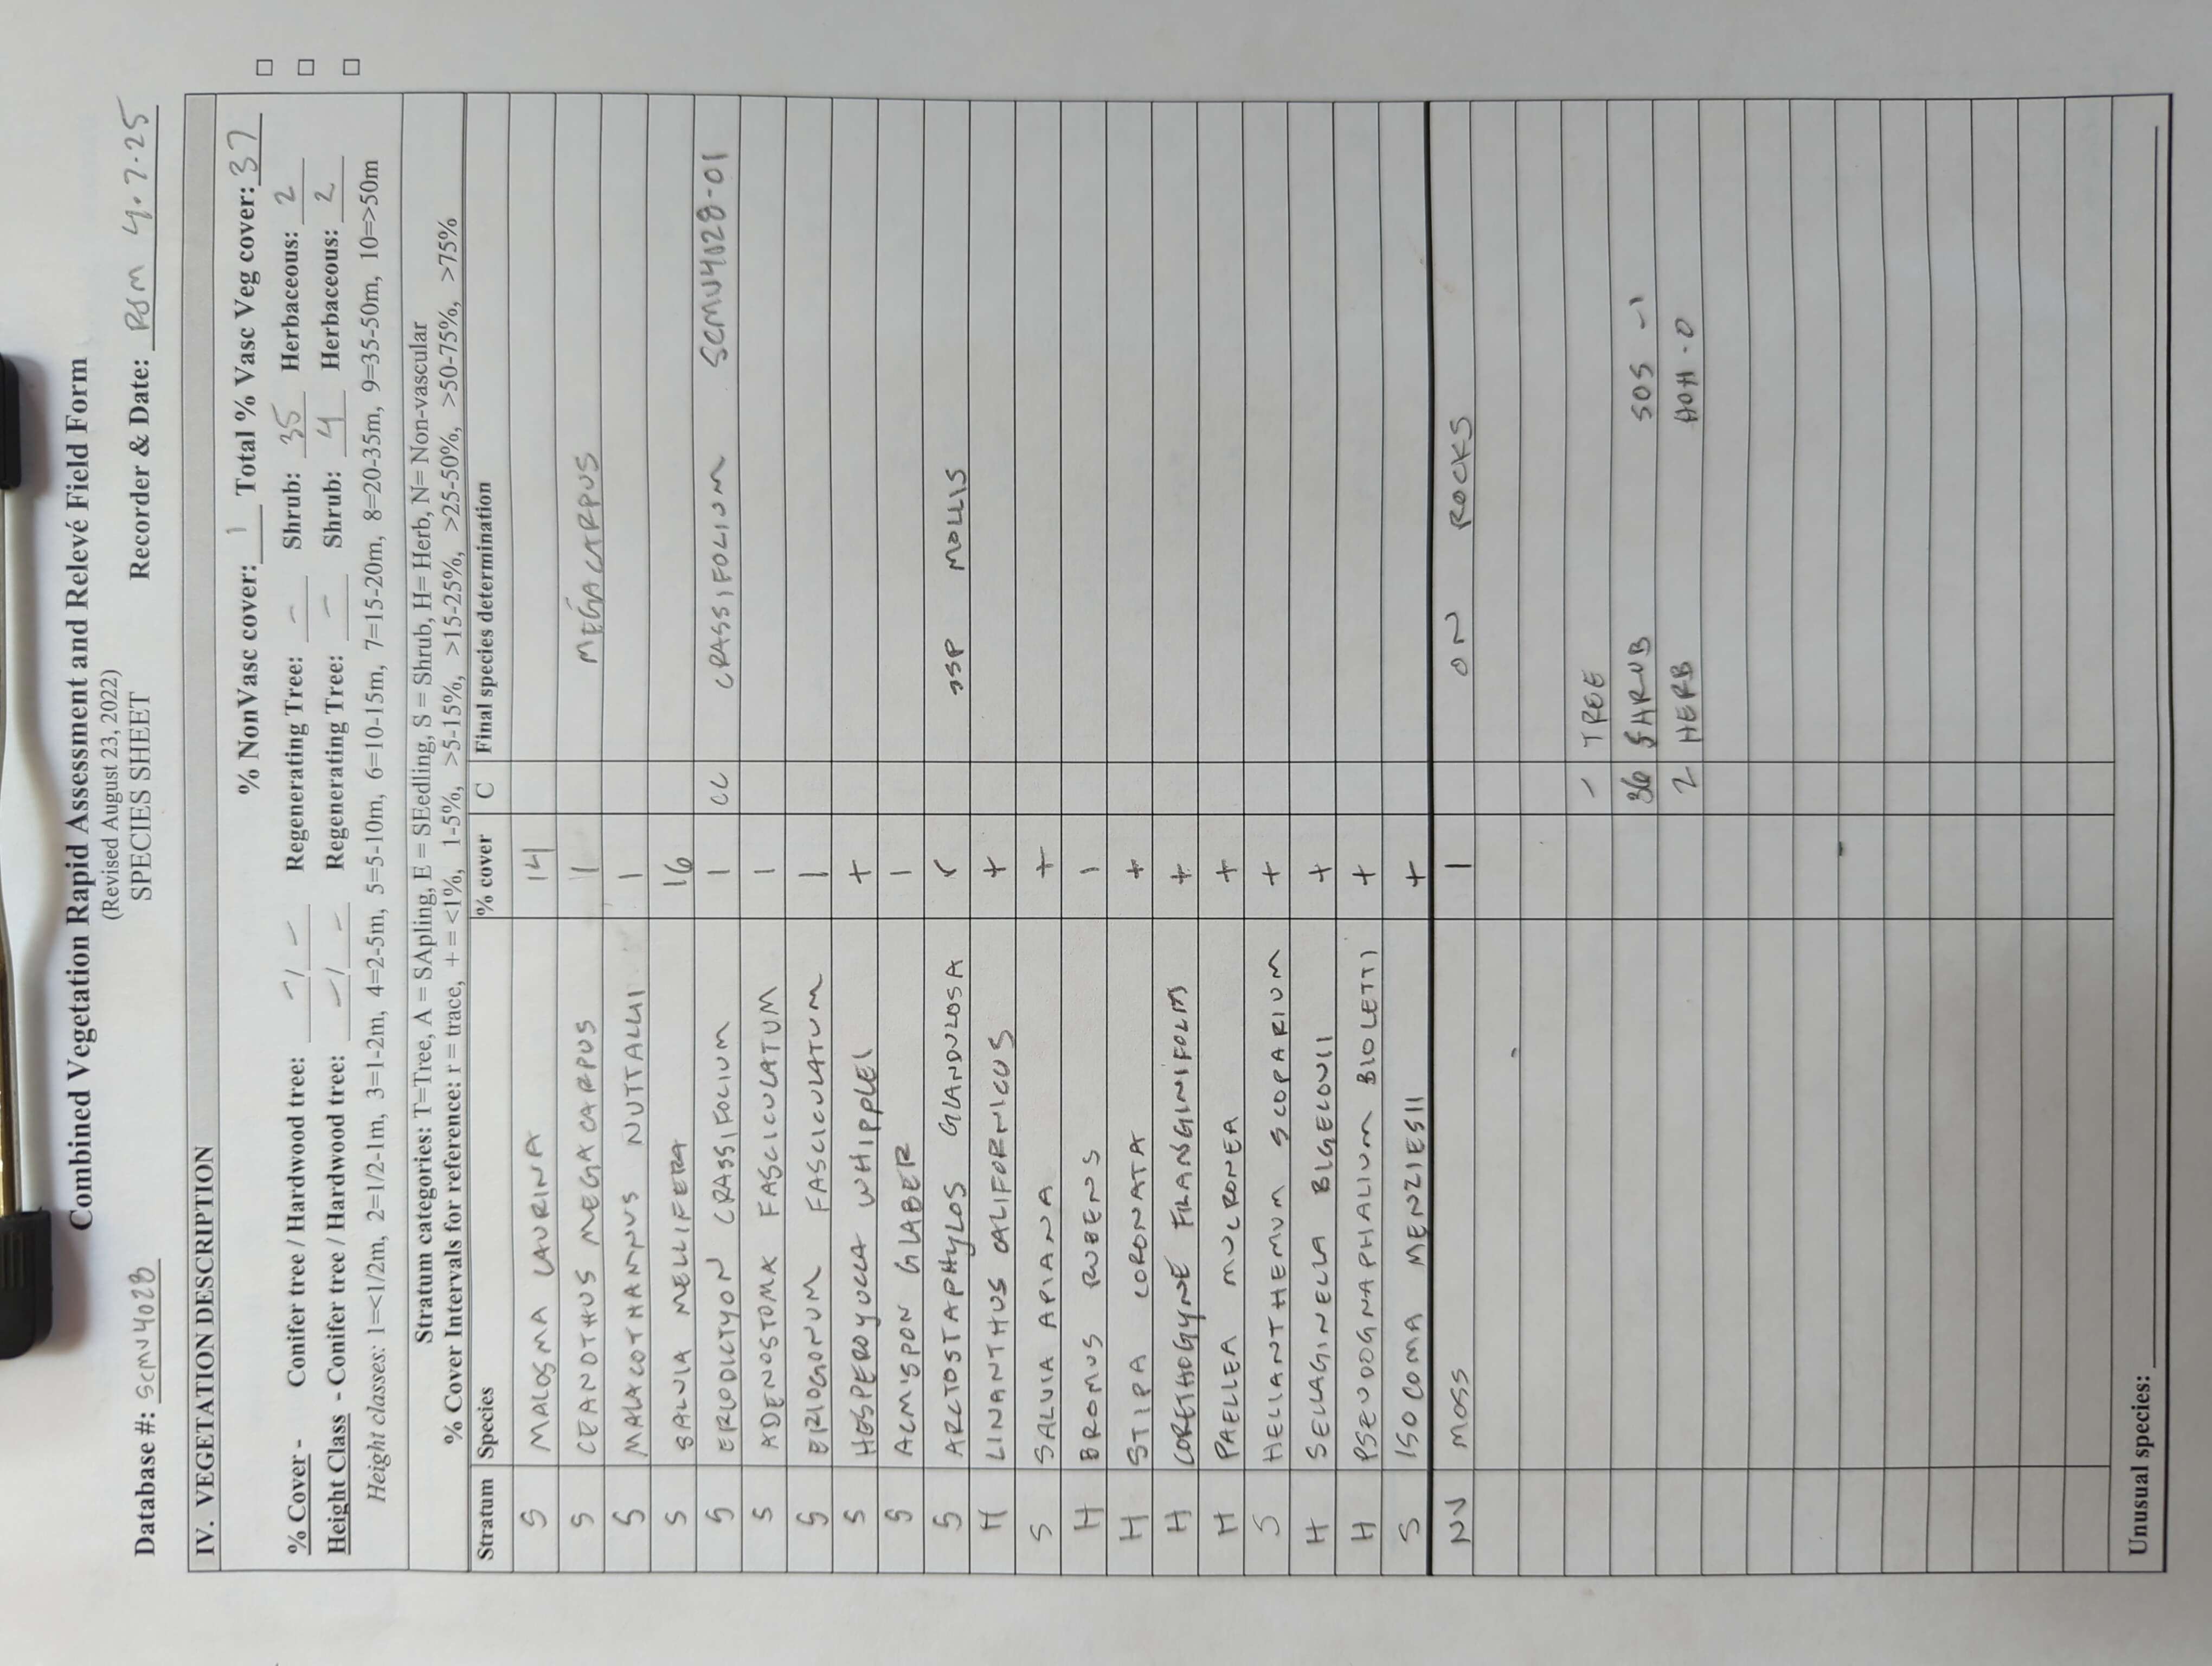 Combined Vegetation Rapid Assessment and Relevé Field Form
(Revised August 23, 2022)
Database #: SCMV4028 SPECIES SHEET Recorder & Date: RSM 4.7.25
IV. VEGETATION DESCRIPTION
% NonVasc cover: 1 Total % Vasc Veg cover: 37
% Cover - Conifer tree / Hardwood tree: - / - Regenerating Tree: - Shrub: 35 Herbaceous: 2
Height Class - Conifer tree / Hardwood tree: - / - Regenerating Tree: - Shrub: 4 Herbaceous: 2
Height classes: 1=<1/2m, 2=1/2-1m, 3=1-2m, 4=2-5m, 5=5-10m, 6=10-15m, 7=15-20m, 8=20-35m, 9=35-50m, 10=>50m
Stratum categories: T=Tree, A = SApling, E = SEedling, S = Shrub, H= Herb, N= Non-vascular
% Cover Intervals for reference: r = trace, + = <1%, 1-5%, >5-15%, >15-25%, >25-50%, >50-75%, >75%
Stratum Species % cover C Final species determination
S MALOSMA LAURINA 14
S CEANOTHUS MEGACARPUS 1 MEGACARPUS
S MALACOTHAMNUS NUTTALLII 1
S SALVIA MELLIFERA 16
S ERIODICTYON CRASSIFOLIUM 1 CC CRASSIFOLIUM SCMV4028-01
S ADENOSTOMA FASCICULATUM 1
S ERIOGONUM FASCICULATUM 1
S HESPEROYUCCA WHIPPLEI +
S ACMISPON GLABER 1
S ARCTOSTAPHYLOS GLANDULOSA r SSP MOLLIS
H LINANTHUS CALIFORNICUS +
S SALVIA APIANA +
H BROMUS RUBENS 1
H STIPA CORONATA +
H CORETHOGYNE FILANGINIFOLIA +
H PAELLEA MUCRONEA +
S HELIANTHEMUM SCOPARIUM +
H SELLAGINELLA BIGELOVII +
H PSEUDOGNAPHALIUM BIOLETTI +
S ISOCOMA MENZIESII +
NV MOSS 1 ON ROCKS
- TREE
36 SHRUB SOS -1
2 HERB HOH - 0
Unusual species: